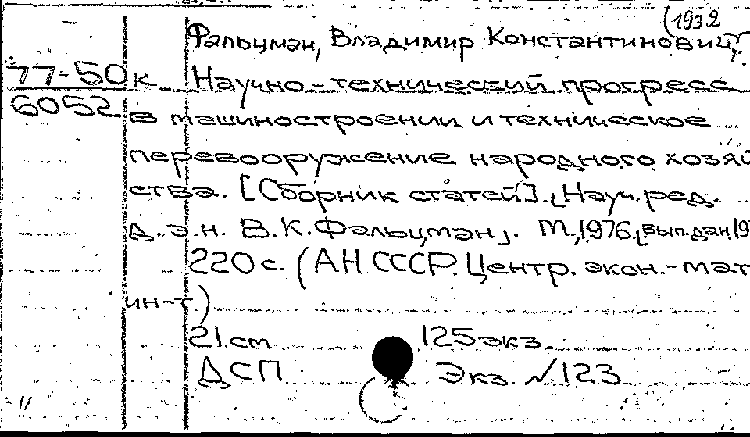 (1932
Фальцман, Владимир Константинович.
77-50к Научно-технический прогресс
6052 в машиностроении и техническое
перевооружение народного хозяй
ства. [Сборник статей]. [Науч. ред.
д.э.н. В.К. Фальцман]. М., 1976, [вып.дан 19
220 с. (АН СССР. Центр. экон.-мат
ин-т)
21 см 125 экз.
ДСП Экз. №123